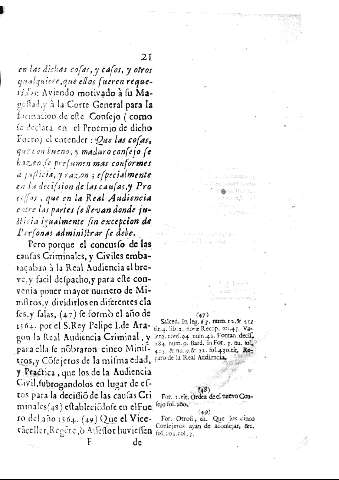 21
en las dichas cosas, y casos, y otros
qualquiere, que ellos fueren reque-
ridos: Aviendo motivado à su Ma-
gestad, y à la Corte General para la
formacion de este Consejo (como
se declara en el Prohemio de dicho
Fuero) el entender: Que las cosas,
que con bueno, y maduro consejo se
hazen, se presumen mas conformes
a justicia, y razon; especialmente
en la decission de las causas, y Pro
cessos, que en la Real Audiencia
entre las partes se llevan donde jus-
ticia igualmente sin excepcion de
Personas administrar se debe.
Pero porque el concurso de las
causas Criminales, y Civiles emba-
raçaba à la Real Audiencia el bre-
ve, y facil despacho, y para este con-
venia poner mayor numero de Mi-
nistros, y dividirlos en diferentes cla
ses, y salas, (47) se formò el año de
1564. por el S. Rey Felipe I. de Ara-
gon la Real Audiencia Criminal, y
para ella se nõbraron cinco Minis-
tros, y Cõsejeros de la misma edad,
y Practica, que los de la Audiencia
Civil, subrogandolos en lugar de es-
tos para la decisiõ de las causas Cri
minales (48) estableciõlose en el Fue
ro del año 1564. (49) Que el Vice-
cãceller, Regẽte, ò Assessor huviessen
F de
(47)
Salced. in leg. 67. num. 12. &
tit. 4. lib. 2. novæ Recop.
Real Audiencia.
(48)
Ordea de el nuevo Con-
sejo fol. 280.
(49)
For. Otrosi, Que los cinco
Consejeros ayan de aconsejar, &c.